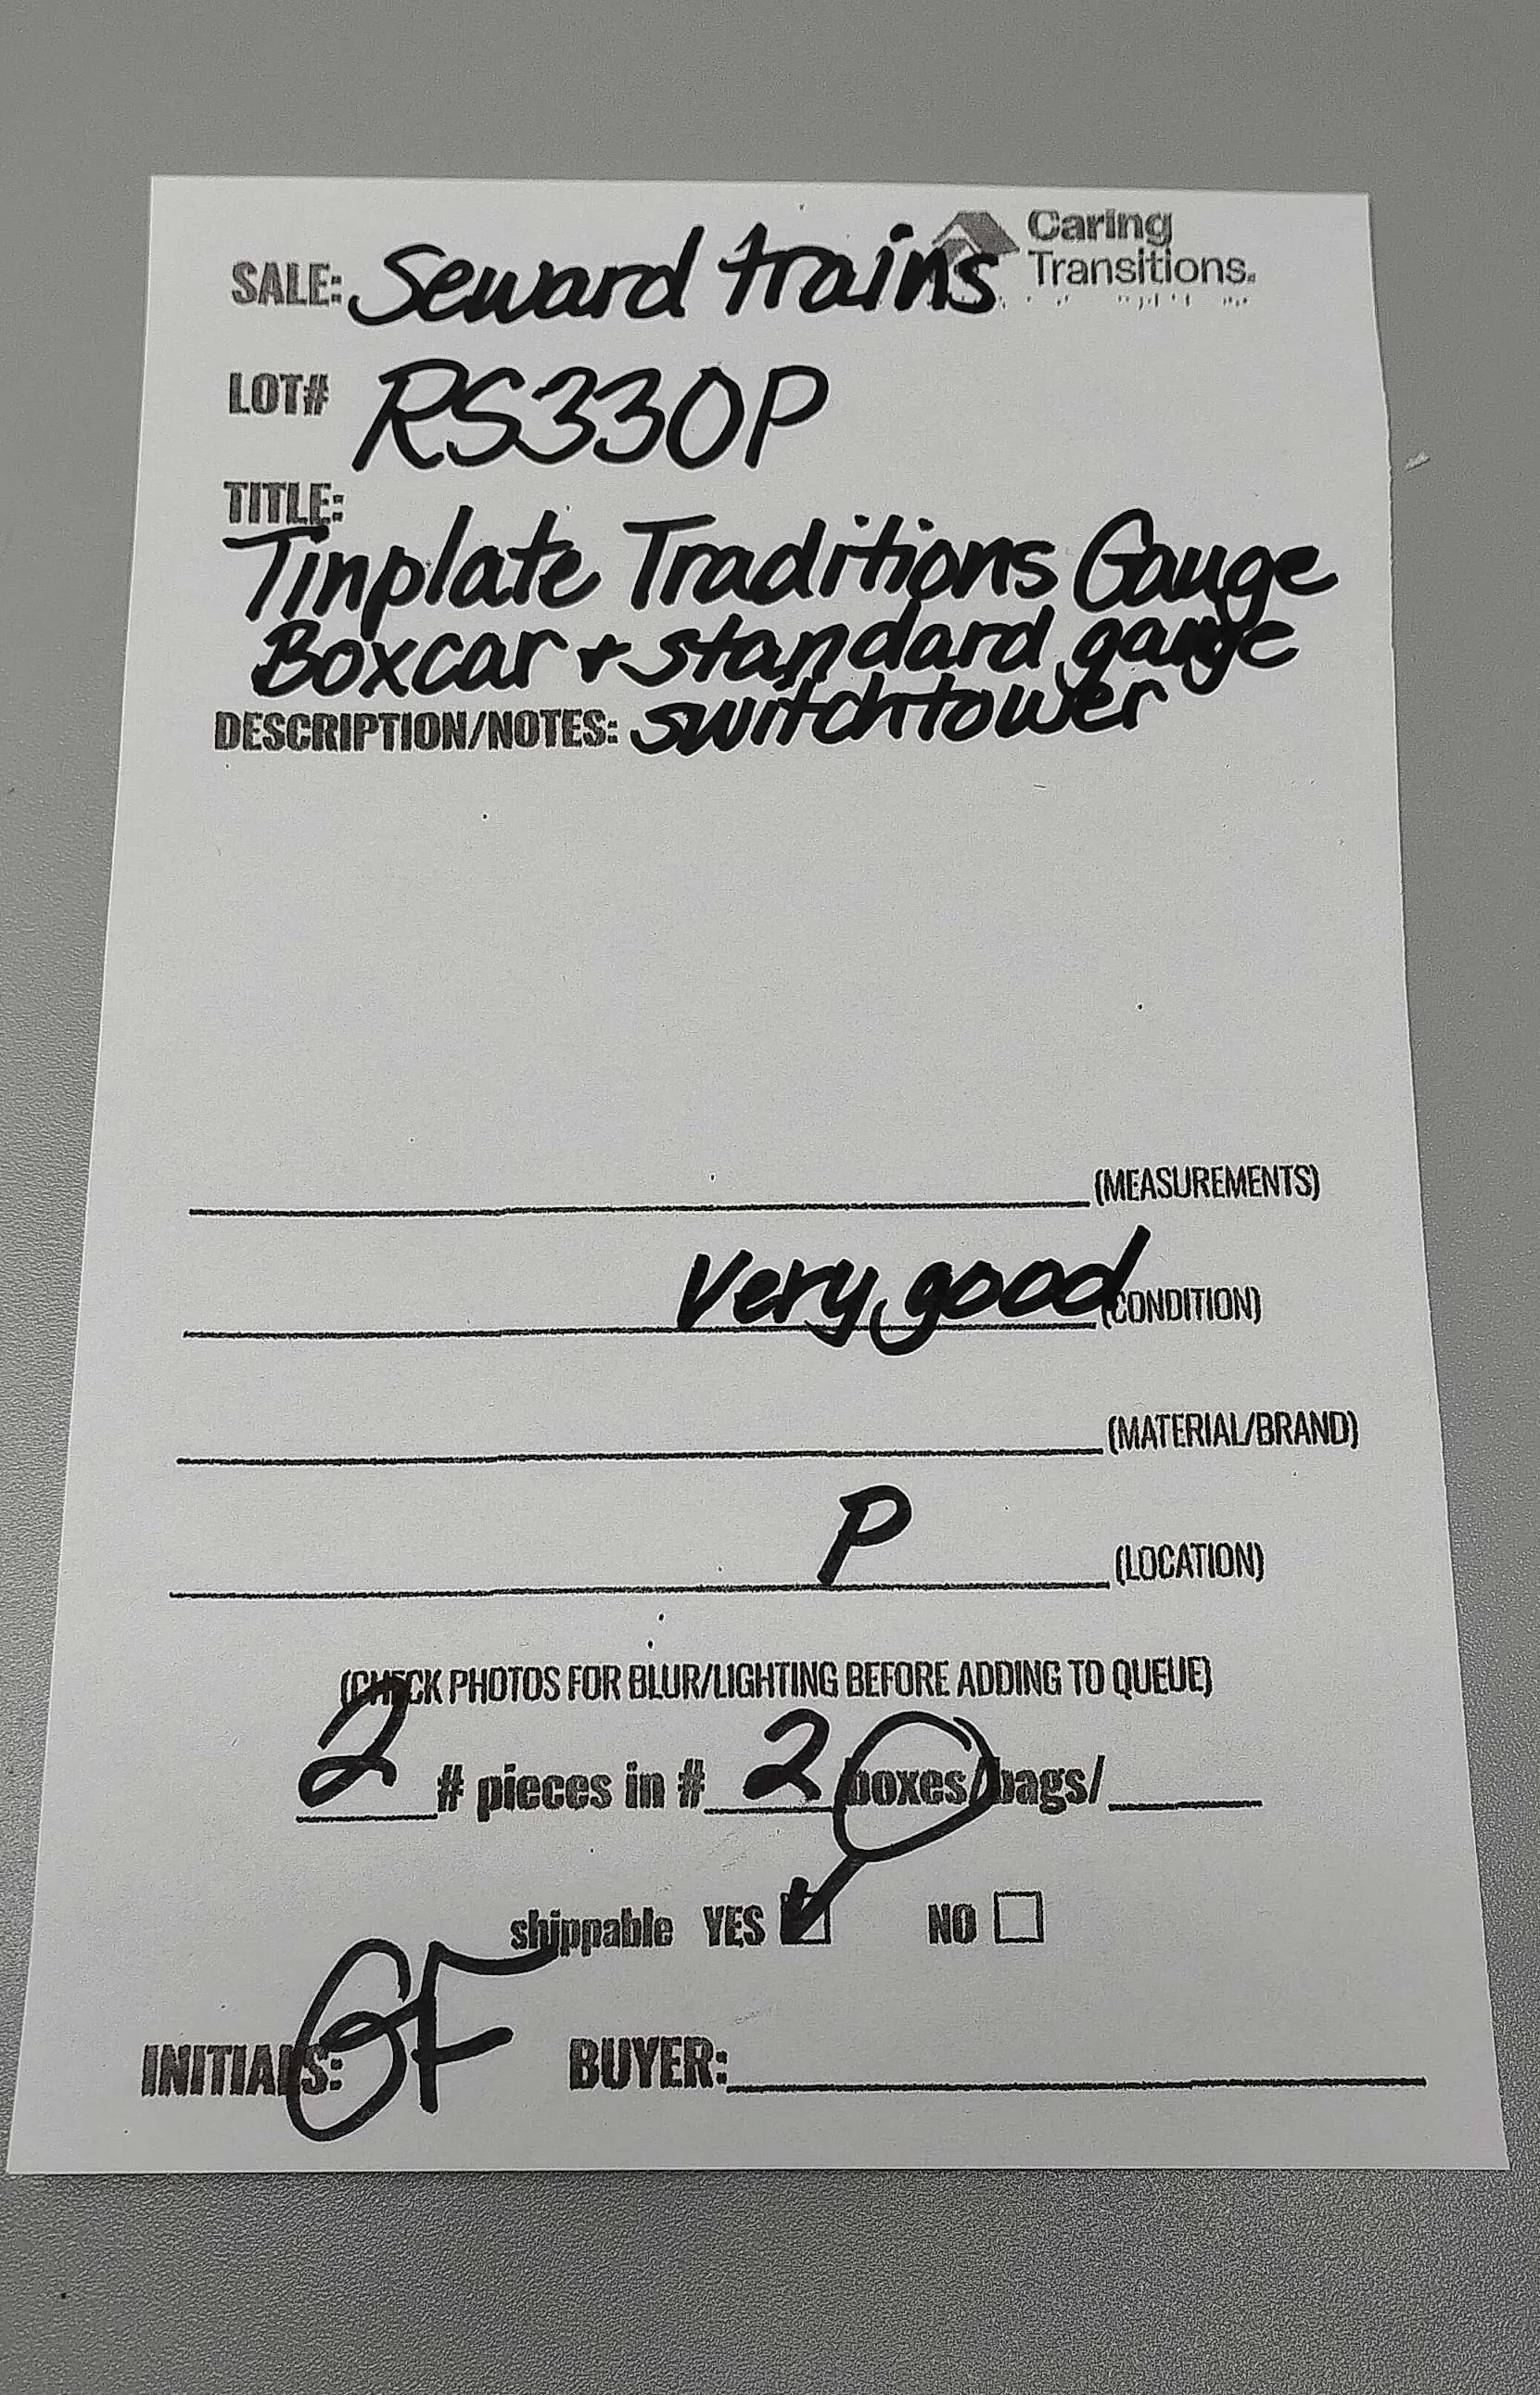 SALE: Seward trains Caring Transitions.
LOT# RS330P
TITLE:
Tinplate Traditions Gauge
Boxcar + standard gauge
DESCRIPTION/NOTES: switchtower
(MEASUREMENTS)
Very good (CONDITION)
(MATERIAL/BRAND)
P (LOCATION)
(CHECK PHOTOS FOR BLUR/LIGHTING BEFORE ADDING TO QUEUE)
2 # pieces in # 2 boxes/bags/
shippable YES NO
INITIALS: GF BUYER: